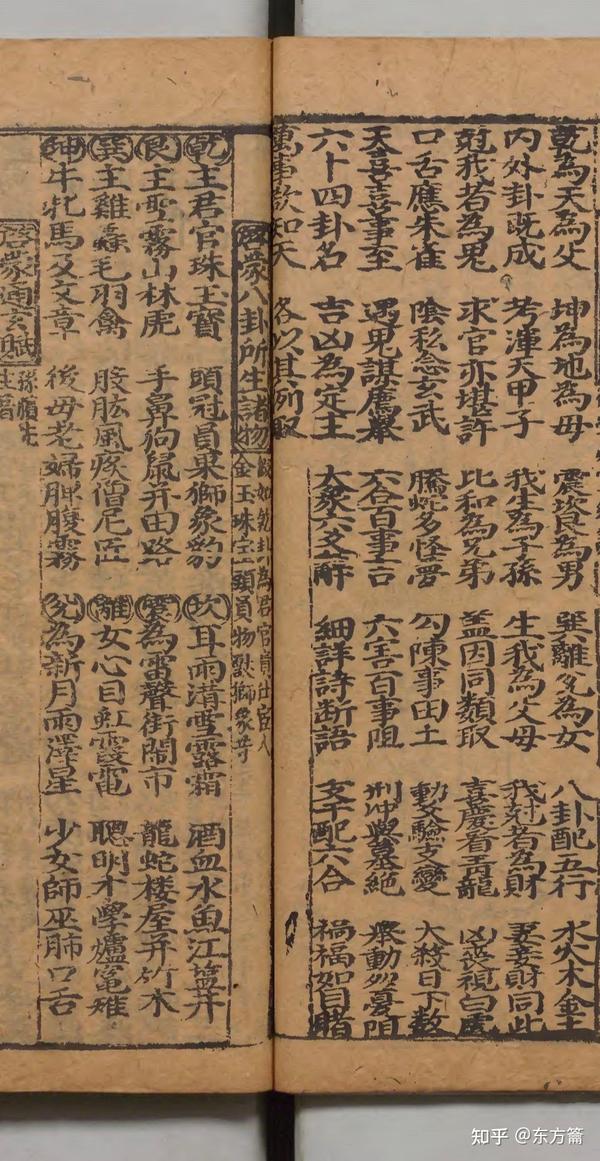 乾為天為父 坤為地為母 震坎艮為男 巽離兌為女 八卦配五行 水火木金土
內外卦既成 考渾天甲子 我生為子孫 生我為父母 我尅者為財 妻妾財同此
尅我者為鬼 求官亦堪許 比和為兄弟 蓋因同類取 喜慶看青龍 凶喪視白虎
口舌應朱雀 陰私念玄武 騰蛇多怪夢 勾陳事田土 動爻驗支變 大殺日下数
天喜喜事至 遇鬼謀應舉 六合百事吉 六害百事阻 刑冲與墓絕 舉動多憂阻
六十四卦名 吉凶為定主 大象六爻辭 細詳詩断語 支干配六合 禍福如目睹
萬事欲知天 各以其列取
啓蒙八卦所生諸物
假如乾卦為君官貴仕宦人
金玉珠宝頭員物獸獅象等
乾主君官珠玉寶 頭冠員果獅象豹 坎耳雨溝雪露霜 酒血水魚江盬井
艮主雲霧山林虎 手鼻狗鼠并田路 震為雷聲街鬧市 龍蛇楼屋并竹木
巽主雞蟲毛羽禽 股肱風疾僧尼匠 離女心目虹霞電 聰明才學爐竈雉
坤牛牝馬及文章 後母老婦脾腹霧 兌為新月雨澤星 少女師巫肺口舌
啓蒙通玄賦
知乎 @东方篇